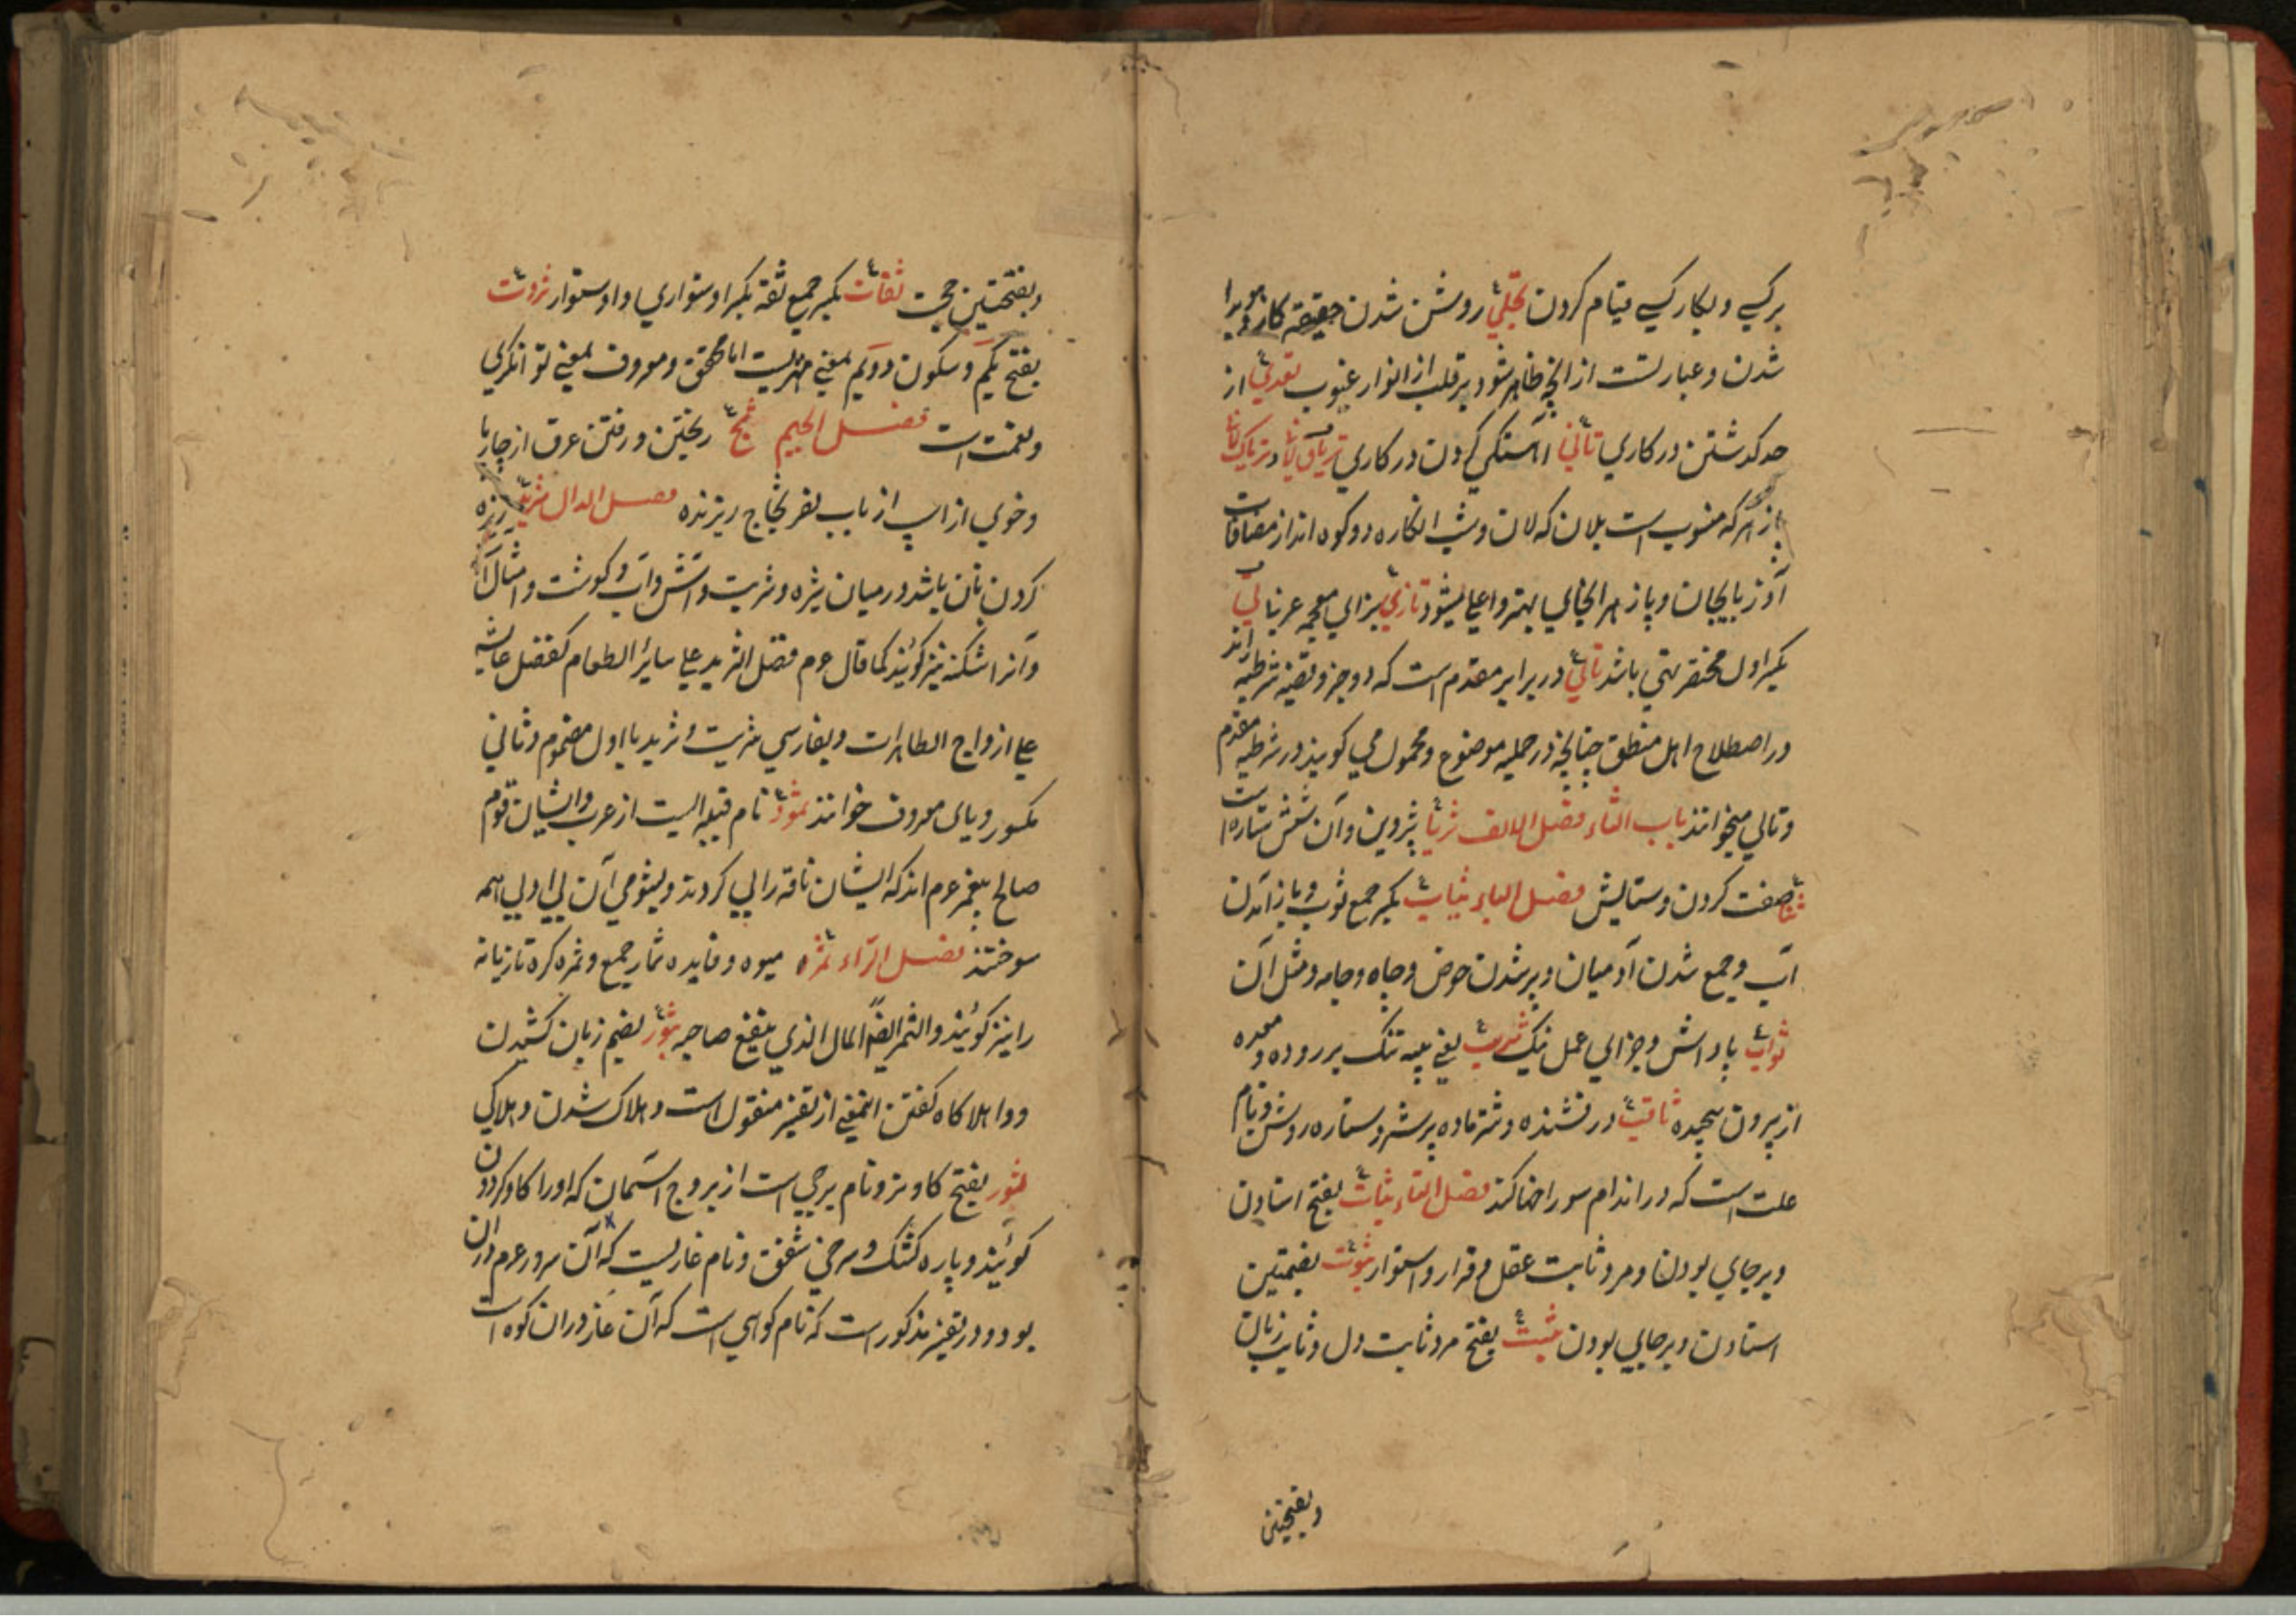 بر کسی و بکار کسی قیام کردن تجلی روشن شدن حقیقة کار هویدا
شدن و عبارتست از انچه ظاهر شود بر قلب از انوار غیوب تعدی از
حد کذشتن در کاری تأنی اهستکی کردن در کاری تریاق لانی و تریاک لانی
که منسوب است بلان که لان و شب انکاره دو کوه اند از مضافات
آذربایجان و پازهر انجایی بهتر و اعلی میشود تازی بزای معجمه عربی تالی
بکسر اول مختصر تهی باشد تالی در برابر مقدم است که دو جزو قضیه شرطیه راند
در اصطلاح اهل منطق چنانچه در حملیه موضوع و محمول می کویند در شرطیه مقدم
و تالی میخوانند باب الثاء فصل الالف ثریا پروین و آن شش ستاره است
ثنا صفت کردن و ستایش فصل الباء ثیاب بکسر جمع ثوب و باز آمدن
آب و جمع شدن آدمیان و پر شدن حوض و چاه و جامه و مثل آن
ثواب پاداش و جزای عمل نیک ثرب یعنی پیه تنک بر روده و معده
از بیرون پیچیده ثاقب درفشنده و شتر ماده پر شیر و ستاره روشن و نام
علت است که در اندام سوراخها کند فصل التاء ثبات بفتح استادن
و برجای بودن و مرد ثابت عقل و قرار و استوار ثبوت بضمتین
استادن و برجایی بودن ثبت بفتح مرد ثابت دل و ثابت زبان
وبفتحتین
وبفتحتین حجت ثقات بکسر جمع ثقة بکسر استواری و استوار ثروت
بفتح یکم و سکون دویم بمعنی اما محقق و معروف بمعنی توانکری
و نعمت است فصل الجیم ثج ریختن و رفتن عرق از چارپا
و خوی از اسپ از باب نصر ثجاج ریزنده فصل الدال ثرید ریزه
کردن نان باشد در میان شیره و شربت و آش و آب و کوشت و امثال آن
و آنرا اشکنه نیز کویند کما قال عم فضل الثرید علی سایر الطعام کفضل عایشه
علی ازواج الطاهرات و بفارسی تریت و ترید با اول مضموم و ثانی
مکسور و یای معروف خوانند ثمود نام قبیله ایست از عرب و ایشان قوم
صالح پیغمبر عم اند که ایشان ناقه را پی کردند و بشومی آن بی ادبی همه
سوختند فصل الراء ثمره میوه و فایده ثمار جمع و ثمره کره تازیانه
را نیز کویند و الثمر ایضاً المال الذی ینفع صاحبه ثبور بضم زیان کشیدن
و واهلاکاه کفتن اینمعنی از تفسیر منقول است و هلاک شدن و هلاکی
ثور بفتح کاو نر و نام برجی است از بروج آسمان که او را کاو کردون
کویند و پاره کشک و سرخی شفق و نام غاریست که آن سرور عم در آن
بود و در تفسیر مذکور است که نام کوهی است که آن غار در ان کوه است